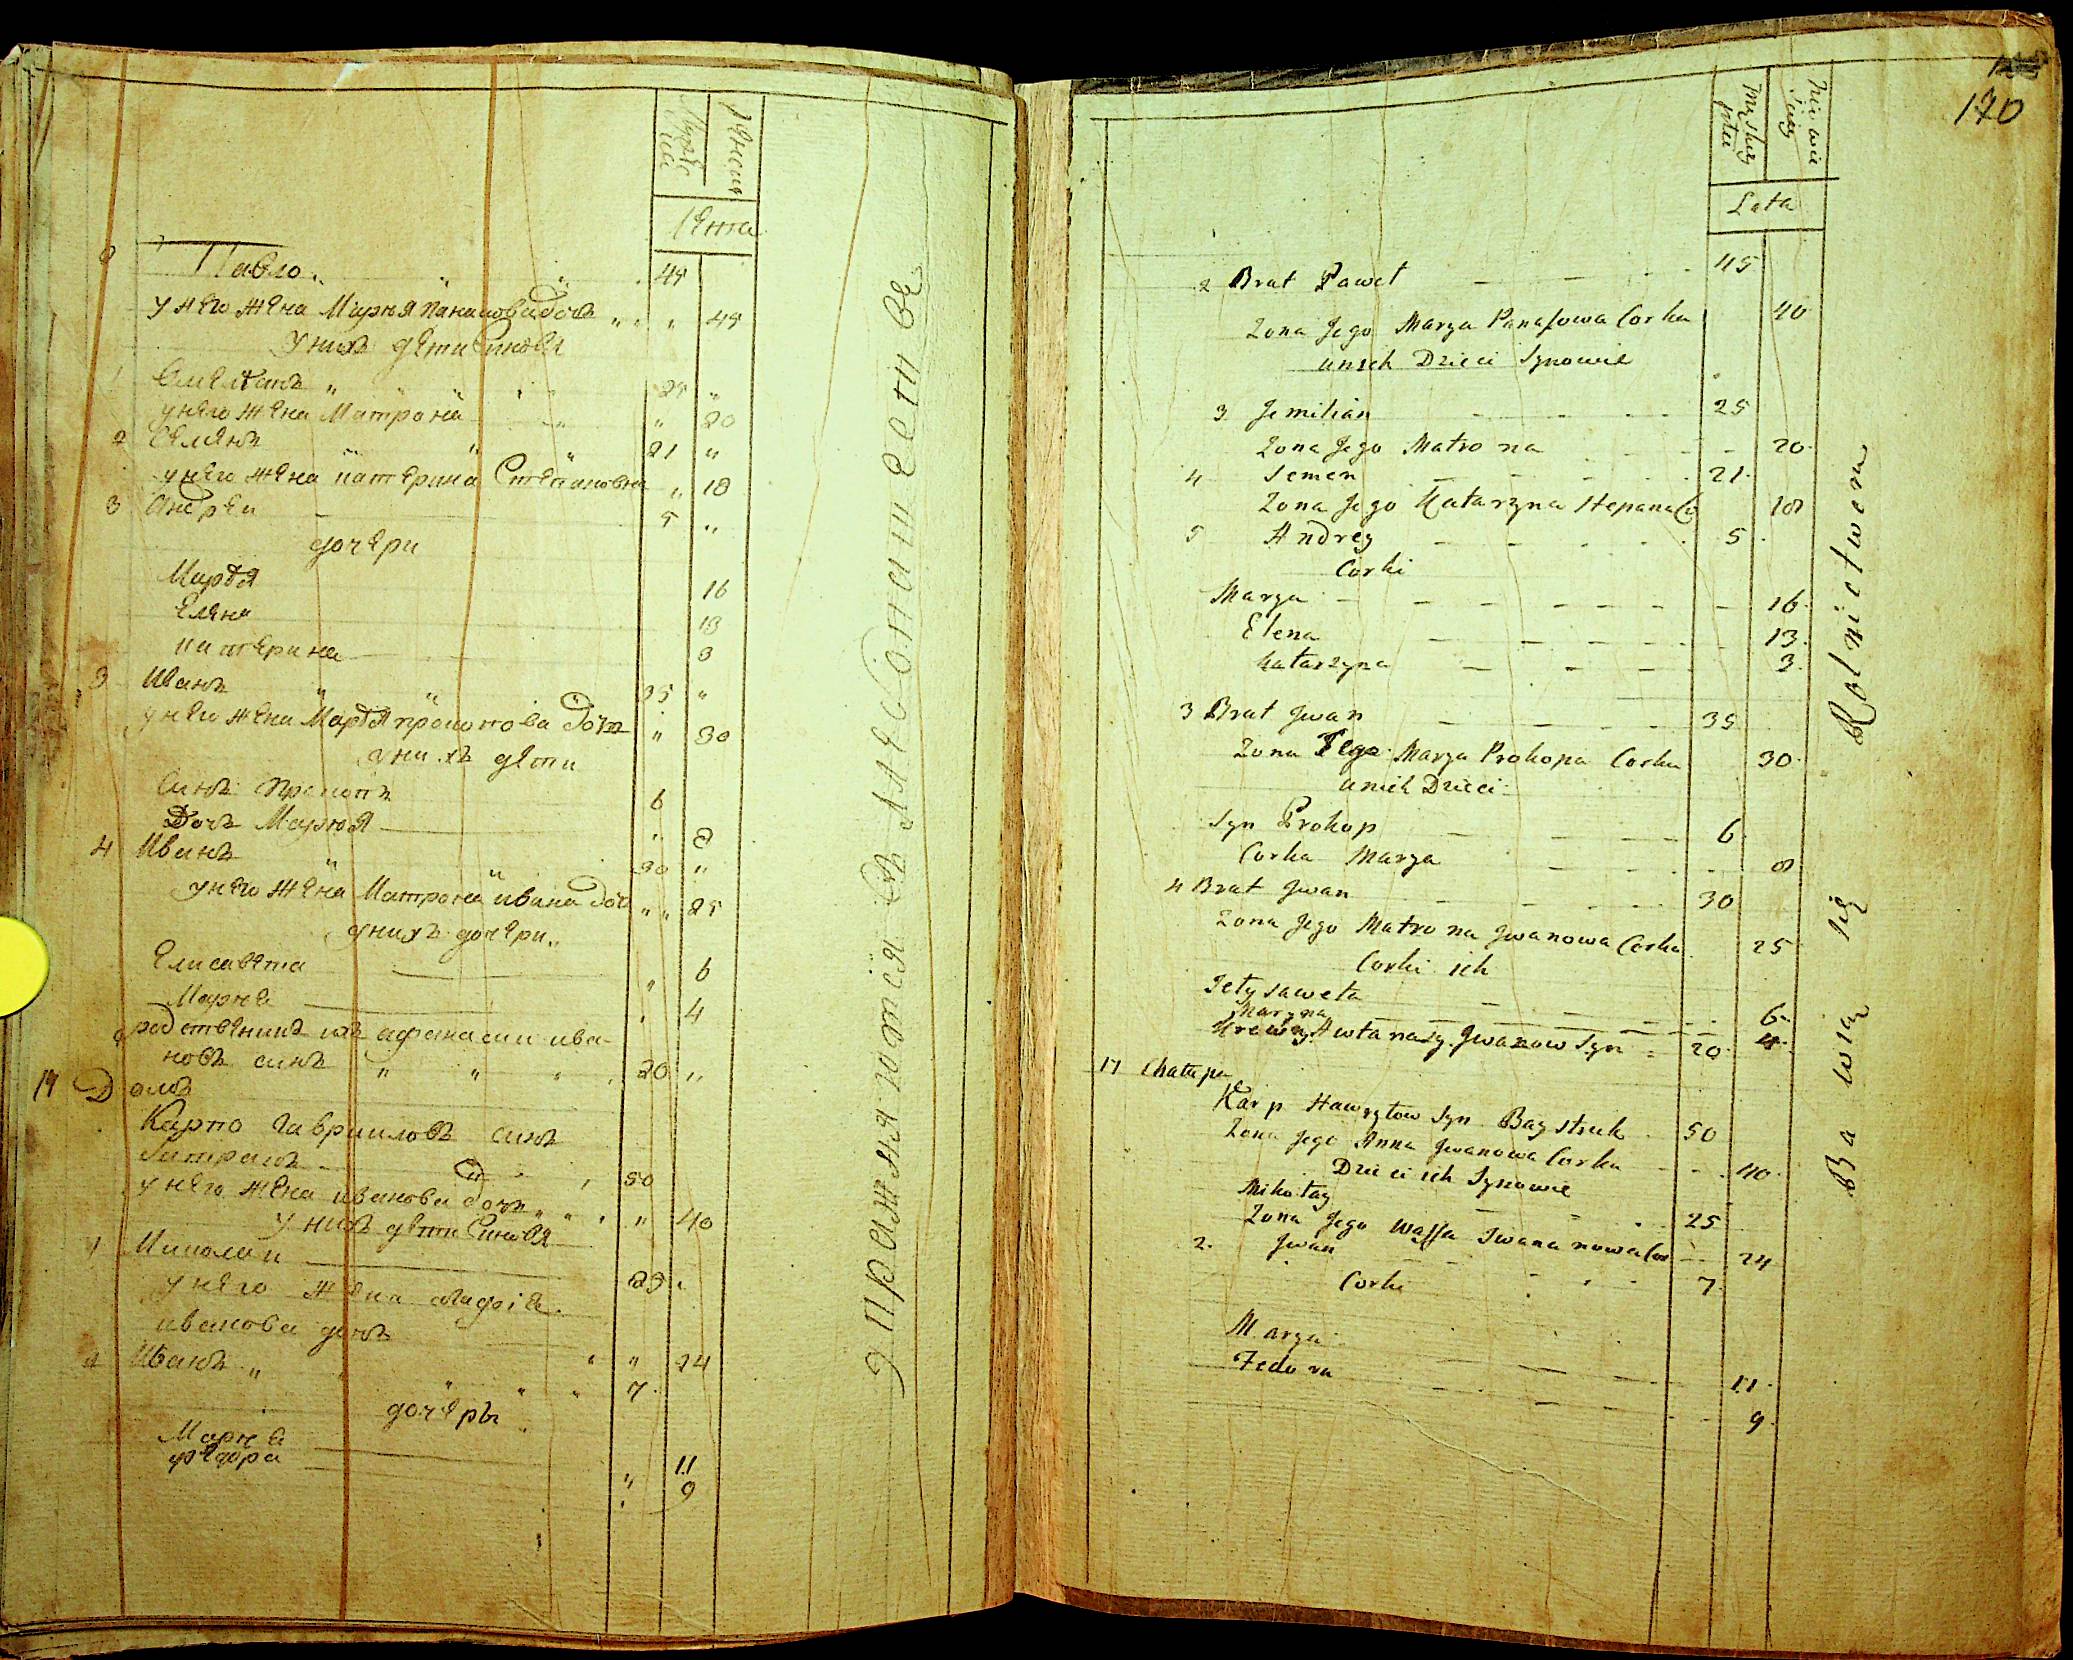 Мужеска
Женск
Лѣта
2 Павло 45
у него жена Марья Панасова дочь 45
у нихъ дети Синовя
1 Емелянъ 25
у него жена Матрона 20
2 Семенъ 21
у него жена катерина Степановна 18
3 Андреи 5
дочери
Марья 16
Елена 13
катерина 3
3 Иванъ 35
у него жена Марья прокопова дочь 30
у нихъ дети
Синъ Прокопъ 6
Дочь Марья 8
4 Иванъ 30
у него жена Матрона ивана доч 25
у нихъ дочери
Елисавета 6
Марья 4
родственикъ ихъ афанасии ива-
новъ синъ 20
17 Домъ
Карпо Гавриловъ синъ
50
у него жена иванова дочь 40
у нихъ дети Синовя
1 Миколаи 25
у него жена
иванова дочь 24
2 Иванъ 7
дочеры
Мария 11
федора 9
упражняются въ
170
Męskiey płci
Niewieściey
Lata
2 Brat Paweł 45
Zona Jego Marya Panasowa Corka 40
unich Dzieci Synowie
3 Jemilian 25
Zona Jego Matrona 20
4 Semen 21
Zona Jego Katarzyna Stepana Co 18
5 Andrey 5
Corki
Marya 16
Elena 13
Katarzyna 3
3 Brat Jwan 35
Zona Jego Marya Prokopa Corka 30
unich Dzieci
Syn Prokop 6
Corka Marya 8
4 Brat Jwan 30
Zona Jego Matrona Jwanowa Corka 25
Corki ich
Jelysaweta 6
Maryna 4
Krewny Awtanazy Jwanow Syn 20
17 Chałupa
Karp Hawryłow Syn Baystruk 50
Zona Jego Anna Jwanowa Corka 40
Dzieci ich Synowie
Mikołay 25
Zona Jego Wassa Iwana nowa Cor 24
2. Jwan 7
Corki
Marya 11
Fedora 9
Bawią się Rolnictwem